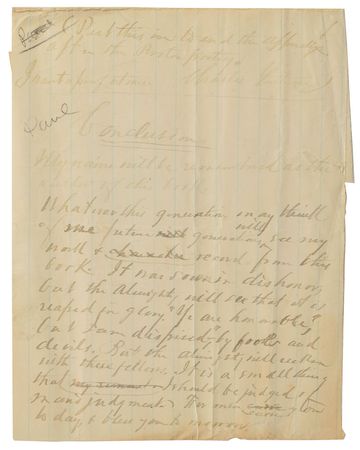 Put this in to end the appendix
after the Poster
Conclusion
My name will be remembered as the
author of this book.
Whatever this generation may think
of me future generations will see my
work & record from this
book. It was sown in dishonor,
but the Almighty will see that it is
reaped in glory. "Ye are honorable,"
but I am despised," by fools and
devils. But the almighty will reckon
with these fellows. It is a small thing
that should be judged
man's judgment. For men
to day, & bless you to morrow.